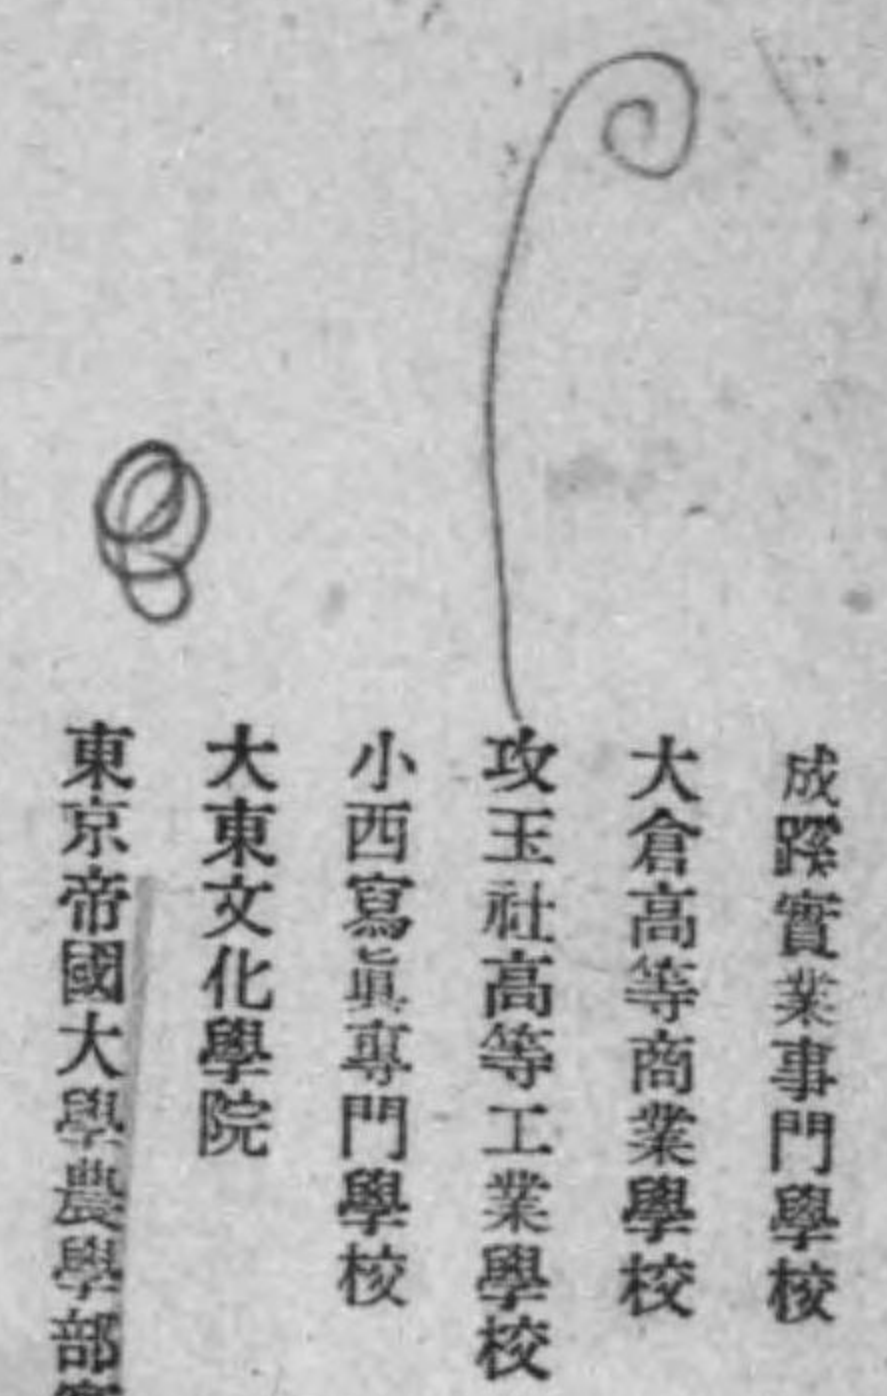 成蹊實業事門學校
大倉高等商業學校
攻玉社高等工業學校
小西寫眞專門學校
大東文化學院
東京帝國大學農學部實